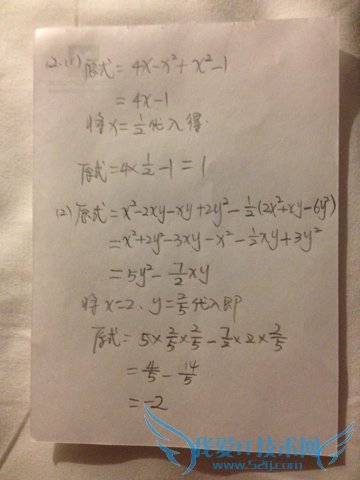 2.(1) 原式 = 4x-x²+x²-1
= 4x-1
将x=½代入得:
原式=4×½-1=1
(2) 原式=x²-2xy-xy+2y²-½(2x²+xy-6y²)
=x²+2y²-3xy-x²-½xy+3y²
=5y²-7/2xy
将x=2.y=2/5代入即
原式=5×2/5×2/5-7/2×2×2/5
=4/5-14/5
=-2
我爱IT技术网
www.52ij.com